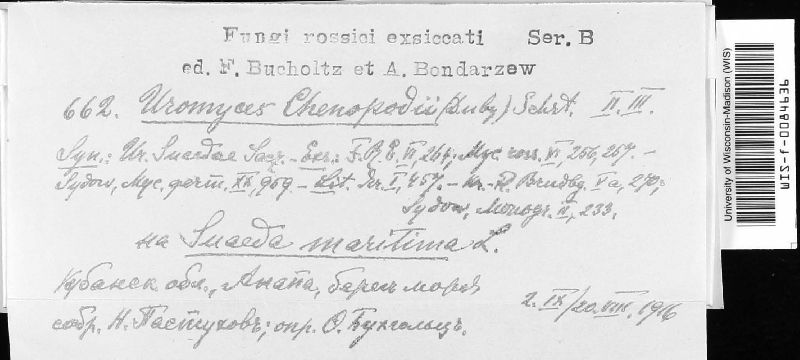 Fungi rossici exsiccati Ser. B
ed. F. Bucholtz et A. Bondarzew
662. Uromyces Chenopodii (Duby) Schrt. II. III.
Syn.: Ur. Suaedae Exs.: F. R. E. VI, 264; Myc. ross. VI, 256, 257. –
Sydow, Myc. germ. XX, 959 – Lit. I, 457. – Kr. Fl. Brndbg. Va, 270;
Sydow, Monogr. II, 233.
на Suaeda maritima L.
Кубанск. обл., Анапа, берег моря
2. IX/20. VIII. 1916
собр. Н. Пастуховъ; опр. Ѳ. Бухгольцъ.
University of Wisconsin-Madison (WIS)
WIS-f-0004936